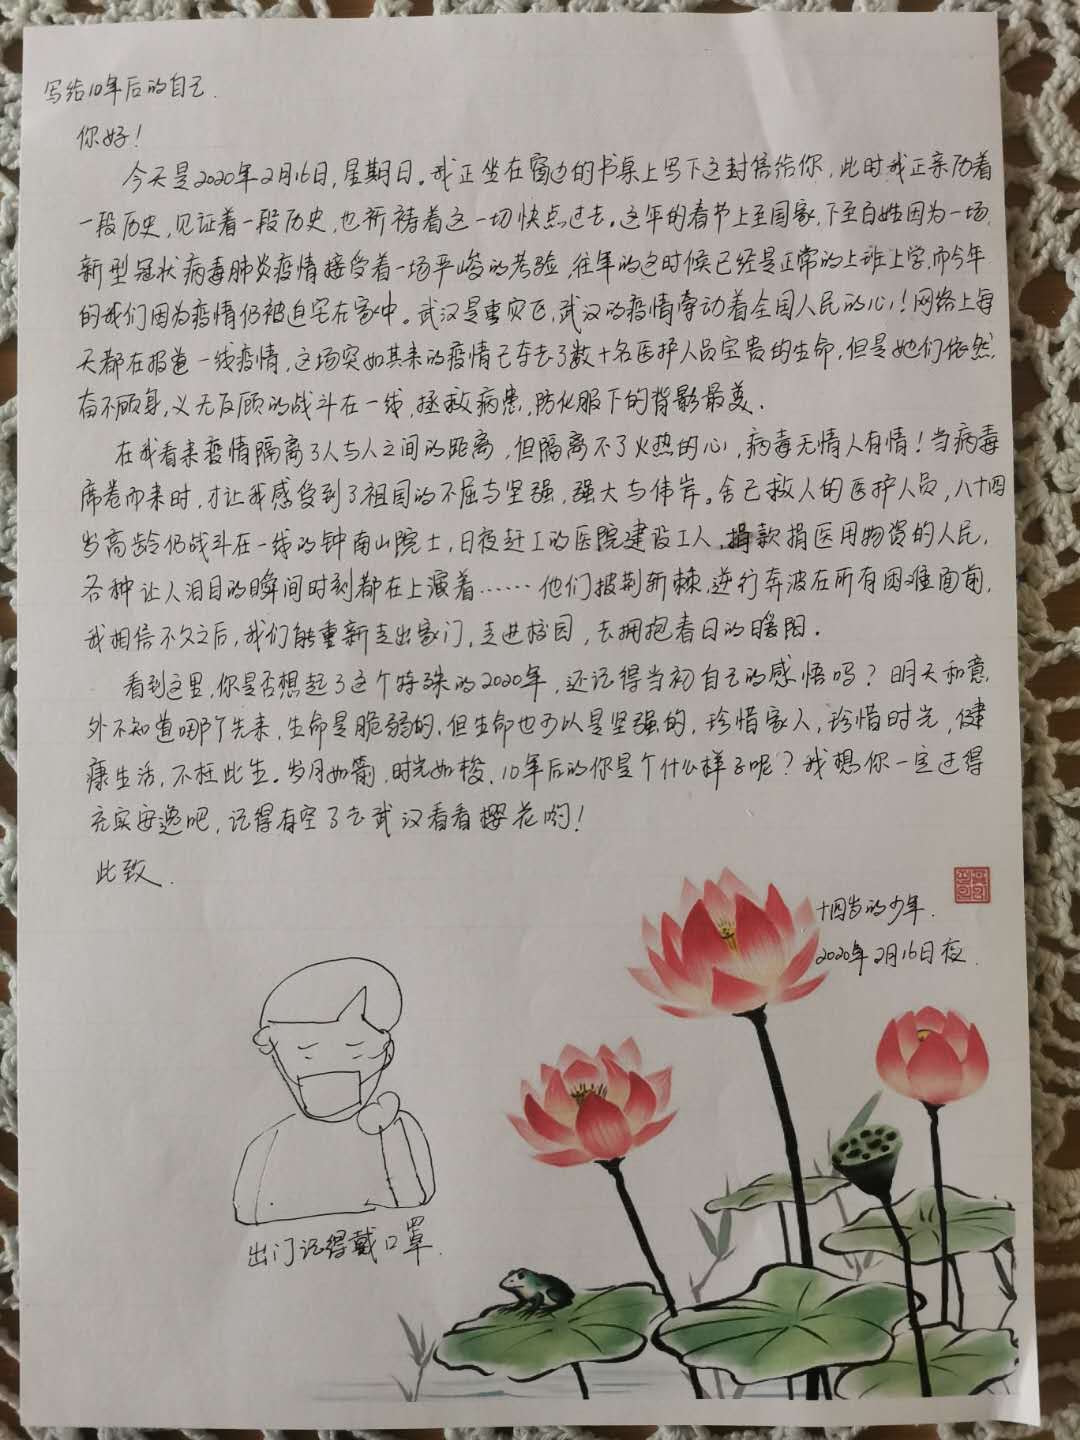 写给10年后的自己.
你好！
今天是2020年2月16日，星期日。我正坐在窗边的书桌上写下这封信给你，此时我正亲历着
一段历史，见证着一段历史，也祈祷着这一切快点过去。这年的春节上至国家，下至百姓因为一场
新型冠状病毒肺炎疫情接受着一场严峻的考验，往年的这时候已经是正常的上班上学，而今年
的我们因为疫情仍被迫宅在家中。武汉是重灾区，武汉的疫情牵动着全国人民的心！网络上每
天都在报道一线疫情，这场突如其来的疫情已夺去了数十名医护人员宝贵的生命，但是她们依然
奋不顾身，义无反顾的战斗在一线，拯救病患，防化服下的背影最美.
在我看来疫情隔离了人与人之间的距离，但隔离不了火热的心，病毒无情人有情！当病毒
席卷而来时，才让我感受到了祖国的不屈与坚强，强大与伟岸。舍己救人的医护人员，八十四
岁高龄仍战斗在一线的钟南山院士，日夜赶工的医院建设工人，捐款捐医用物资的人民，
各种让人泪目的瞬间时刻都在上演着……他们披荆斩棘，逆行奔波在所有困难面前，
我相信不久之后，我们能重新走出家门，走进校园，去拥抱春日的暖阳.
看到这里，你是否想起了这个特殊的2020年，还记得当初自己的感悟吗？明天和意
外不知道哪个先来，生命是脆弱的，但生命也可以是坚强的，珍惜家人，珍惜时光，健
康生活，不枉此生。岁月如箭，时光如梭，10年后的你是个什么样子呢？我想你一定过得
充实安逸吧，记得有空了去武汉看看樱花哟！
此致.
十四岁的少年.
2020年2月16日夜.
出门记得戴口罩.